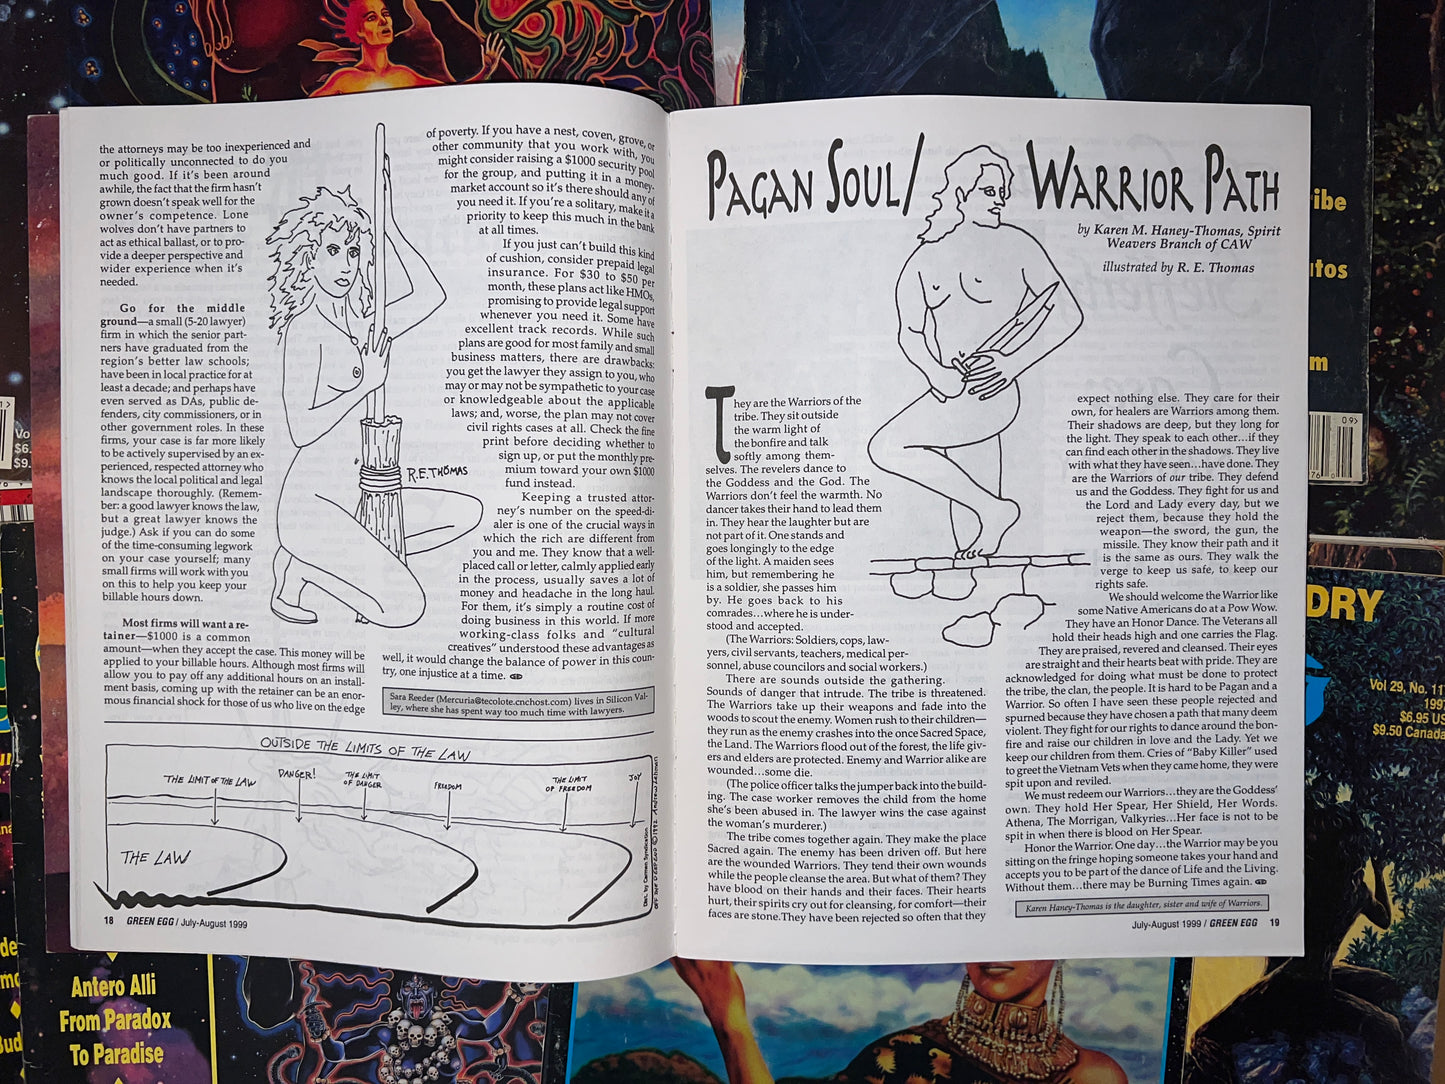 the attorneys may be too inexperienced and
or politically unconnected to do you
much good. If it's been around
awhile, the fact that the firm hasn't
grown doesn't speak well for the
owner's competence. Lone
wolves don't have partners to
act as ethical ballast, or to pro-
vide a deeper perspective and
wider experience when it's
needed.
Go for the middle
ground—a small (5-20 lawyer)
firm in which the senior part-
ners have graduated from the
region's better law schools;
have been in local practice for at
least a decade; and perhaps have
even served as DAs, public de-
fenders, city commissioners, or in
other government roles. In these
firms, your case is far more likely
to be actively supervised by an ex-
perienced, respected attorney who
knows the local political and legal
landscape thoroughly. (Remem-
ber: a good lawyer knows the law,
but a great lawyer knows the
judge.) Ask if you can do some
of the time-consuming legwork
on your case yourself; many
small firms will work with you
on this to help you keep your
billable hours down.
Most firms will want a re-
tainer—$1000 is a common
amount—when they accept the case. This money will be
applied to your billable hours. Although most firms will
allow you to pay off any additional hours on an install-
ment basis, coming up with the retainer can be an enor-
mous financial shock for those of us who live on the edge
of poverty. If you have a nest, coven, grove, or
other community that you work with, you
might consider raising a $1000 security pool
for the group, and putting it in a money-
market account so it's there should any of
you need it. If you're a solitary, make it a
priority to keep this much in the bank
at all times.
If you just can't build this kind
of cushion, consider prepaid legal
insurance. For $30 to $50 per
month, these plans act like HMOs,
promising to provide legal support
whenever you need it. Some have
excellent track records. While such
plans are good for most family and small
business matters, there are drawbacks:
you get the lawyer they assign to you, who
may or may not be sympathetic to your case
or knowledgeable about the applicable
laws; and, worse, the plan may not cover
civil rights cases at all. Check the fine
print before deciding whether to
sign up, or put the monthly pre-
mium toward your own $1000
fund instead.
Keeping a trusted attor-
ney's number on the speed-di-
aler is one of the crucial ways in
which the rich are different from
you and me. They know that a well-
placed call or letter, calmly applied early
in the process, usually saves a lot of
money and headache in the long haul.
For them, it's simply a routine cost of
doing business in this world. If more
working-class folks and "cultural
creatives" understood these advantages as
well, it would change the balance of power in this coun-
try, one injustice at a time.
R.E.THOMAS
Sara Reeder (Mercuria@tecolote.cnchost.com) lives in Silicon Val-
ley, where she has spent way too much time with lawyers.
OUTSIDE THE LIMITS OF THE LAW
THE LIMIT OF THE LAW
DANGER!
THE LIMIT
OF DANGER
FREEDOM
THE LIMIT
OF FREEDOM
JOY
THE LAW
18 GREEN EGG / July-August 1999
PAGAN SOUL/ WARRIOR PATH
by Karen M. Haney-Thomas, Spirit
Weavers Branch of CAW
illustrated by R. E. Thomas
They are the Warriors of the
tribe. They sit outside
the warm light of
the bonfire and talk
softly among them-
selves. The revelers dance to
the Goddess and the God. The
Warriors don't feel the warmth. No
dancer takes their hand to lead them
in. They hear the laughter but are
not part of it. One stands and
goes longingly to the edge
of the light. A maiden sees
him, but remembering he
is a soldier, she passes him
by. He goes back to his
comrades...where he is under-
stood and accepted.
(The Warriors: Soldiers, cops, law-
yers, civil servants, teachers, medical per-
sonnel, abuse councilors and social workers.)
There are sounds outside the gathering.
Sounds of danger that intrude. The tribe is threatened.
The Warriors take up their weapons and fade into the
woods to scout the enemy. Women rush to their children—
they run as the enemy crashes into the once Sacred Space,
the Land. The Warriors flood out of the forest, the life giv-
ers and elders are protected. Enemy and Warrior alike are
wounded...some die.
(The police officer talks the jumper back into the build-
ing. The case worker removes the child from the home
she's been abused in. The lawyer wins the case against
the woman's murderer.)
The tribe comes together again. They make the place
Sacred again. The enemy has been driven off. But here
are the wounded Warriors. They tend their own wounds
while the people cleanse the area. But what of them? They
have blood on their hands and their faces. Their hearts
hurt, their spirits cry out for cleansing, for comfort—their
faces are stone.They have been rejected so often that they
expect nothing else. They care for their
own, for healers are Warriors among them.
Their shadows are deep, but they long for
the light. They speak to each other...if they
can find each other in the shadows. They live
with what they have seen...have done. They
are the Warriors of our tribe. They defend
us and the Goddess. They fight for us and
the Lord and Lady every day, but we
reject them, because they hold the
weapon—the sword, the gun, the
missile. They know their path and it
is the same as ours. They walk the
verge to keep us safe, to keep our
rights safe.
We should welcome the Warrior like
some Native Americans do at a Pow Wow.
They have an Honor Dance. The Veterans all
hold their heads high and one carries the Flag.
They are praised, revered and cleansed. Their eyes
are straight and their hearts beat with pride. They are
acknowledged for doing what must be done to protect
the tribe, the clan, the people. It is hard to be Pagan and a
Warrior. So often I have seen these people rejected and
spurned because they have chosen a path that many deem
violent. They fight for our rights to dance around the bon-
fire and raise our children in love and the Lady. Yet we
keep our children from them. Cries of "Baby Killer" used
to greet the Vietnam Vets when they came home, they were
spit upon and reviled.
We must redeem our Warriors...they are the Goddess'
own. They hold Her Spear, Her Shield, Her Words.
Athena, The Morrigan, Valkyries...Her face is not to be
spit in when there is blood on Her Spear.
Honor the Warrior. One day...the Warrior may be you
sitting on the fringe hoping someone takes your hand and
accepts you to be part of the dance of Life and the Living.
Without them...there may be Burning Times again.
Karen Haney-Thomas is the daughter, sister and wife of Warriors.
July-August 1999 / GREEN EGG 19
Antero Alli
From Paradox
To Paradise
DRY
Vol 29, No. 11
1997
$6.95 US
$9.50 Canada